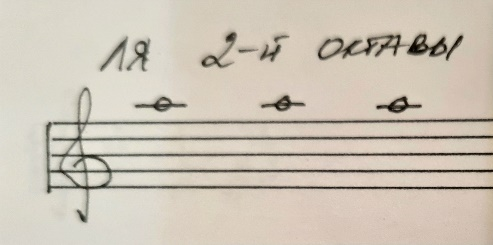 ля 2-й октавы